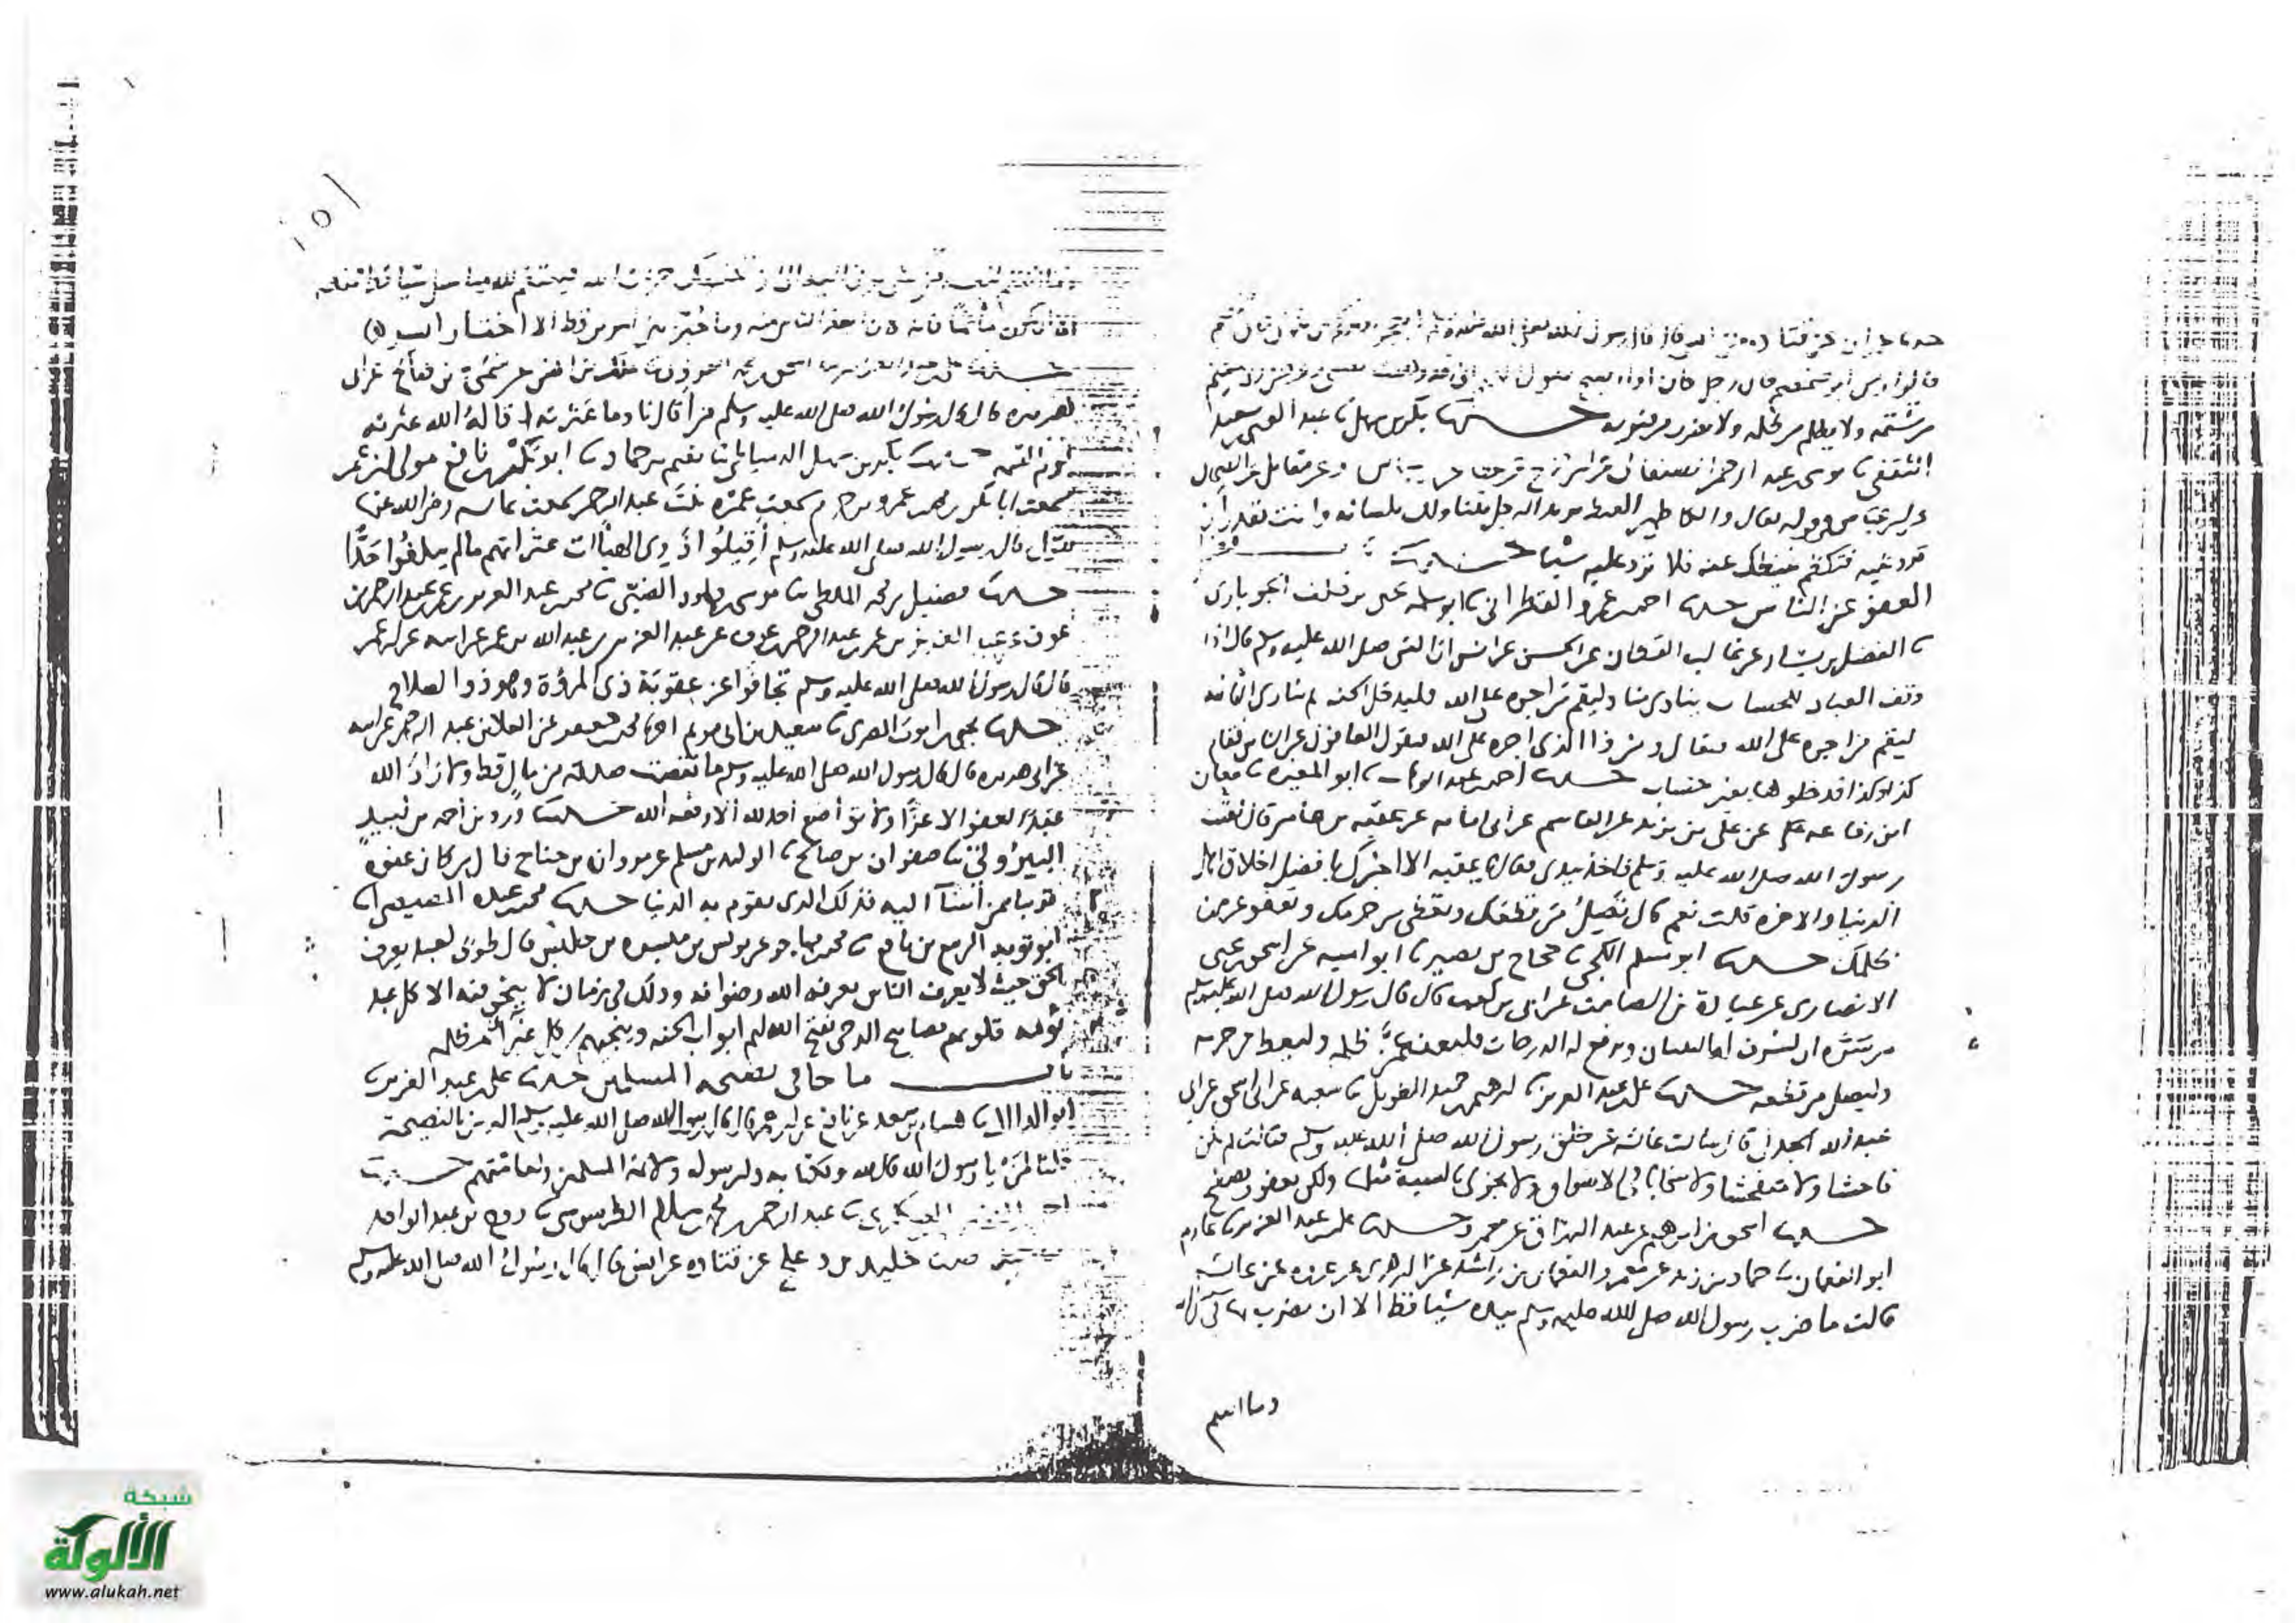 قال قال رسول الله صلى الله عليه وسلم
قالوا ومن ابو ضمضم قال رجل كان اذا اصبح يقول
من شتمه ولا يظلم من ظلمه ولا يضرب من ضربه حدثنا بكر بن سهل ثنا عبد الغني بن سعيد
الثقفي ثنا موسى بن عبد الرحمن الصنعاني عن ابن جريج عن عطا عن ابن عباس وعن مقاتل عن الضحاك
عن ابن عباس في قوله تعالى والكاظمين الغيظ يريد الرجل يتناولك بلسانه وانت تقدر ان
ترد عليه فتكظم غيظك عنه فلا ترد عليه شيا
العفو عن الناس حدثنا احمد بن عمرو القطراني ثنا ابو سلمه يحيى بن خلف الجوباري
ثنا الفضل بن يسار عن غالب القطان عن الحسن عن انس ان النبي صلى الله عليه وسلم قال اذا
وقف العباد للحساب ينادي مناد ليقم من اجره على الله فليدخل الجنه ثم نادى الثانيه
ليقم من اجره على الله فيقال ومن ذا الذي اجره على الله فيقول العافون عن الناس فقام
كذا وكذا فدخلوها بغير حساب حدثنا احمد بن عبد الوهاب ثنا ابو المغيره ثنا معان
ابن رفاعه عن علي بن يزيد عن القاسم عن ابي امامه عن عقبه بن عامر قال لقيت
رسول الله صلى الله عليه وسلم فاخذ بيدي فقال يا عقبه الا اخبرك بافضل اخلاق اهل
الدنيا والاخره قلت نعم قال تصل من قطعك وتعطي من حرمك وتعفو عن من
ظلمك حدثنا ابو مسلم الكجي ثنا حجاج بن نصير ثنا ابو اميه عن اسحق بن يحيى
الانصاري عن عبادة بن الصامت عن ابي بن كعب قال قال رسول الله صلى الله عليه وسلم
من سره ان يشرف له البنيان وترفع له الدرجات فليعف عمن ظلمه وليعط من حرمه
وليصل من قطعه حدثنا علي بن عبد العزيز ثنا شعبه عن ابي اسحق عن ابي
عبد الله الجدلي قال سالت عائشه عن خلق رسول الله صلى الله عليه وسلم فقالت لم يكن
فاحشا ولا متفحشا ولا سخابا في الاسواق ولا يجزي بالسيية مثلها ولكن يعفو ويصفح
حدثنا اسحق بن ابراهيم عن عبد الرزاق عن معمر وحدثنا علي بن عبد العزيز ثنا عارم
ابو النعمان ثنا حماد بن زيد عن معمر والنعمان بن راشد عن الزهري عن عروه عن عائشه
قالت ما ضرب رسول الله صلى الله عليه وسلم بيده شيا قط الا ان يضرب
وما انتقم
١٥١
الله فينتقم لله
اثما كان ابعد الناس منه وما خير بين امرين قط الا اختار ايسر
حدثنا علي بن عبد العزيز ثنا اسحق بن محمد الفروي ثنا مالك بن انس عن سمي عن ابي صالح عن ابي
هريره قال قال رسول الله صلى الله عليه وسلم من اقال نادما عثرته اقاله الله عثرته
يوم القيمه حدثنا بكر بن سهل الدمياطي ثنا نعيم بن حماد ثنا ابو بكر بن نافع مولى ابن عمر
سمعت ابا بكر بن محمد بن عمرو بن حزم سمعت عمره بنت عبد الرحمن سمعت عايشه رضي الله عنها
تقول قال رسول الله صلى الله عليه وسلم أقيلوا ذوى الهيآت عثراتهم مالم يبلغوا حدا
حدثنا فضيل بن محمد الملطي ثنا موسى بن داود الضبي ثنا محمد بن عبد العزيز بن عمر بن عبد الرحمن بن
عوف عن عبد العزيز بن عبد الله بن عمر عن ابيه عن ابن عمر
قال قال رسول الله صلى الله عليه وسلم تجافوا عن عقوبة ذي المروة وهو ذو الصلاح
حدثنا يحيى بن ايوب المصري ثنا سعيد بن ابي مريم اخبرنا محمد بن جعفر عن العلا بن عبد الرحمن عن ابيه
عن ابي هريره قال قال رسول الله صلى الله عليه وسلم ما نقصت صدقة من مال قط ولا زاد الله
عبدا بعفو الا عزا ولا تواضع احد لله الا رفعه الله حدثنا ورد بن احمد بن لبيد
البيروتي ثنا صفوان بن صالح ثنا الوليد بن مسلم عن مروان بن جناح قال من كان عفوه
قريبا ممن أسآ اليه فذلك الذي تقوم به الدنيا حدثنا محمد بن عبده المصيصي ثنا
ابو توبه الربيع بن نافع ثنا محمد بن مهاجر عن يونس بن ميسره بن حلبس قال طوبى لعبد يعرف
الحق حيث لا يعرف الناس يعرفه الله رضوانه وذلك في زمان لا ينجو فيه الا كل عبد
نومه قلوبهم مصابيح الدجى يفتح الله لهم ابواب الجنه وينجيهم من كل غبرا مظلمه
باب ما جا في نصيحه المسلمين حدثنا علي بن عبد العزيز ثنا
هشام بن سعد عن نافع عن ابن عمر قال قال رسول الله صلى الله عليه وسلم الدين النصيحة
قلنا لمن يا رسول الله قال لله ولكتابه ولرسوله ولائمة المسلمين ولعامتهم حدثنا
احمد بن النضر العسكري ثنا عبد الرحمن بن محمد بن سلام الطرسوسي ثنا روح بن عبد الواحد
ثنا خليد بن دعلج عن قتاده عن انس قال قال رسول الله صلى الله عليه وسلم
شبكة
الألوكة
www.alukah.net